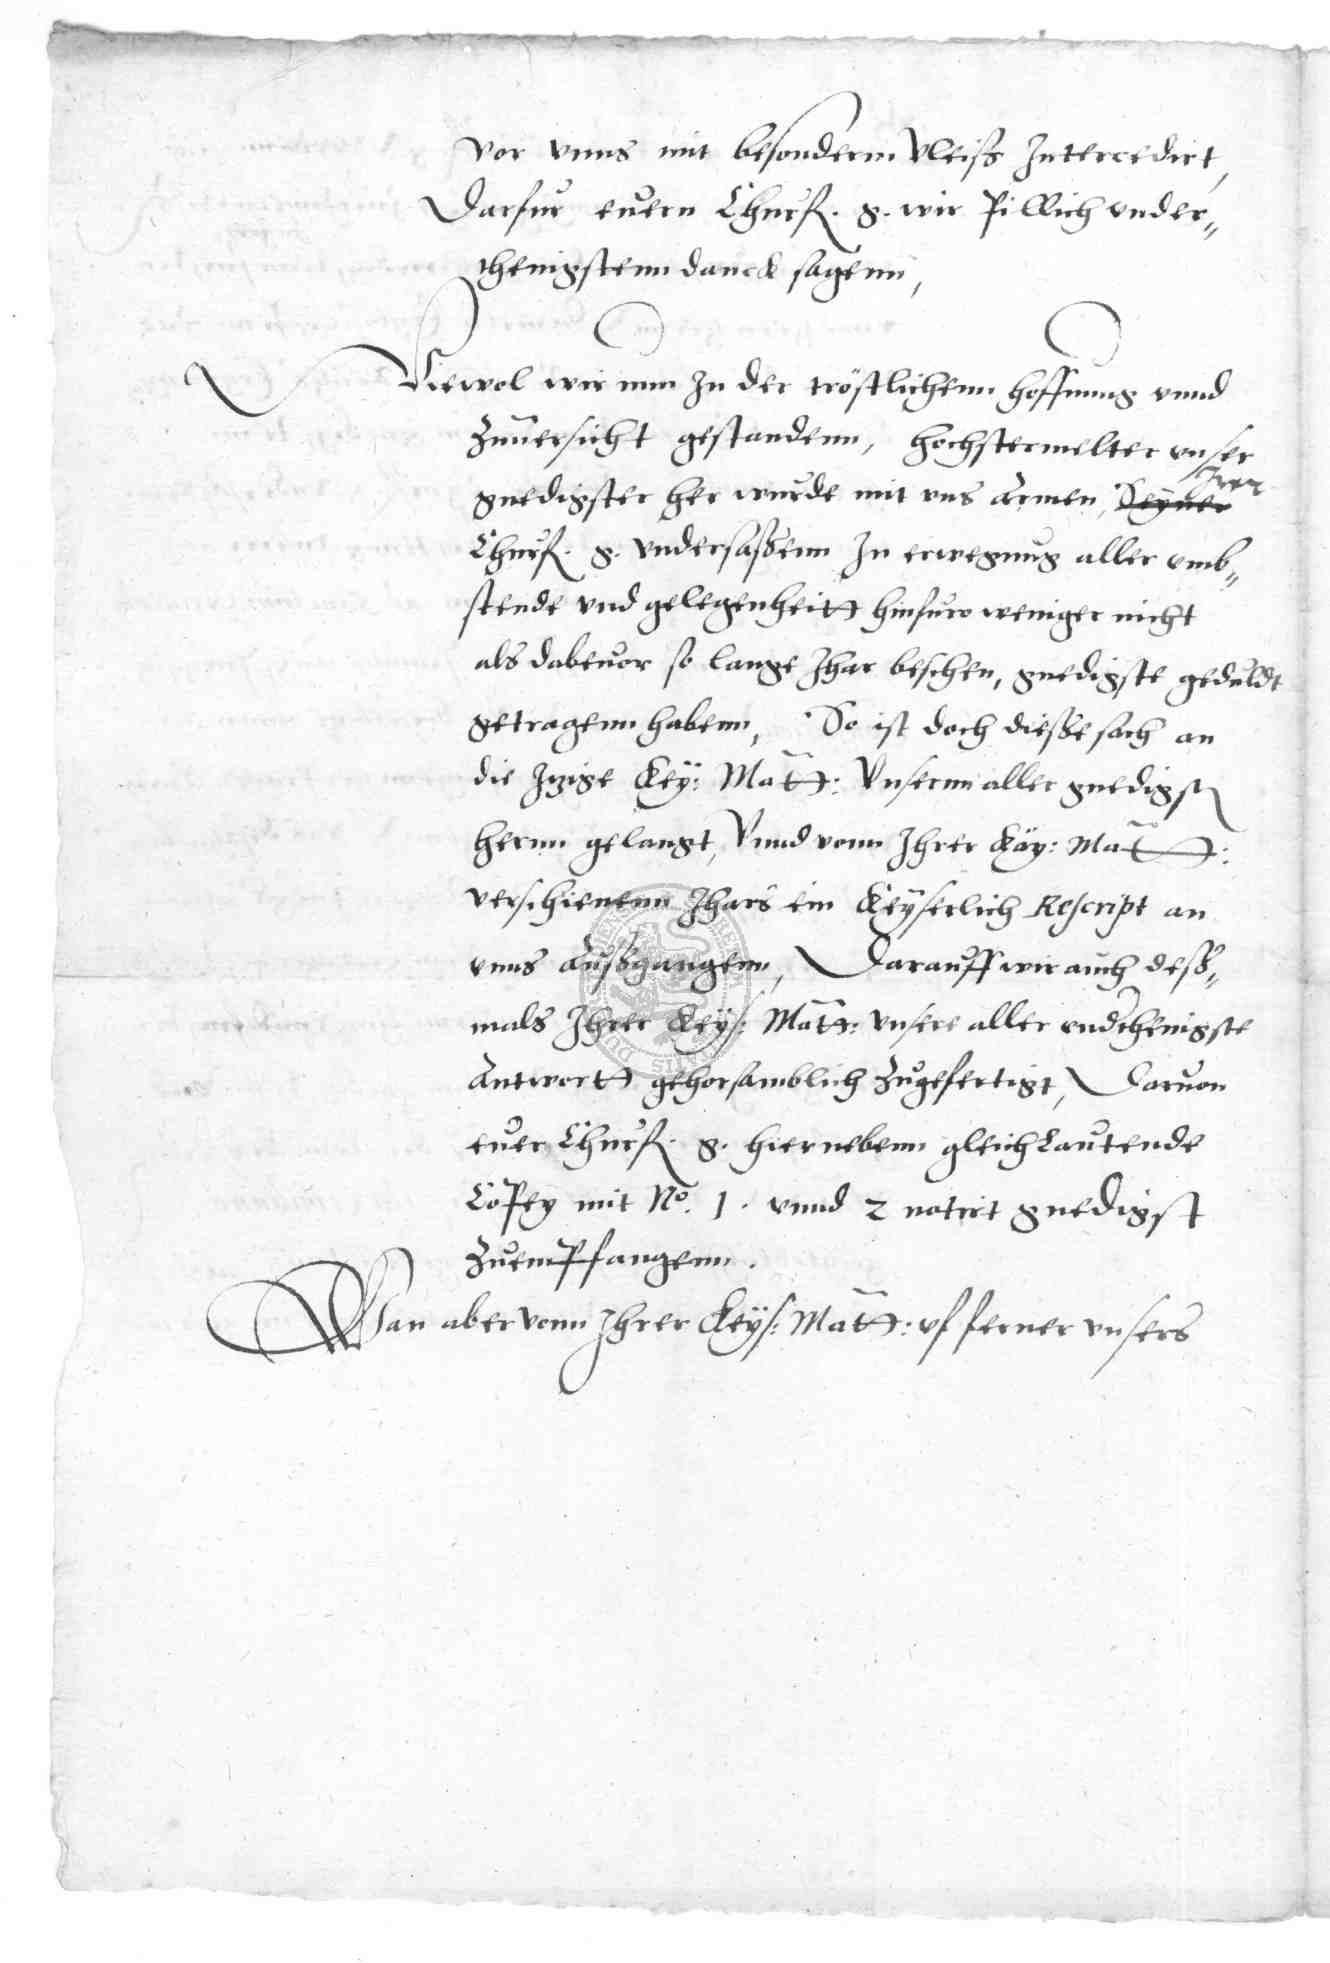 vor vnns mit besonderm Vleiß Intercedirt,
Darfur euern Churf. g. wir Pillich vnder=
thenigstenn danck sagenn,
Wiewol wir nun In der tröstlichenn hoffnung vnnd
Zuuersicht gestandenn, hochstermelter vnser
gnedigster her wurde mit vns Armen, Seyner Irer
Churf. g. vndersaßenn In erwegnug aller vmb=
stende vnd gelegenheitt hinfuro weniger nicht
als dabeuor so lange Jhar beschen, gnedigste gedult
getragenn habenn, So ist doch dieße sach an
die Jtzige Key: Matt: Vnserm aller gnedigst
hernn gelangt, Vnnd vonn Ihrer Kay: Matt:
verschienenn Jhars ein Keyserlich Rescript an
vnns Außgangenn, Darauff wir auch deß=
mals Ihrer Keys: Matt: vnsere aller vnderthenigste
Antwortt gehorsamblich Zugefertigt, Daruon
euer Churf. g. hiernebenn gleich Lautende
Copey mit No. 1. vnnd 2 notirt gnedigst
Zuempfangenn.
Wan aber vonn Ihrer Keys: Matt: vf ferner vnsers